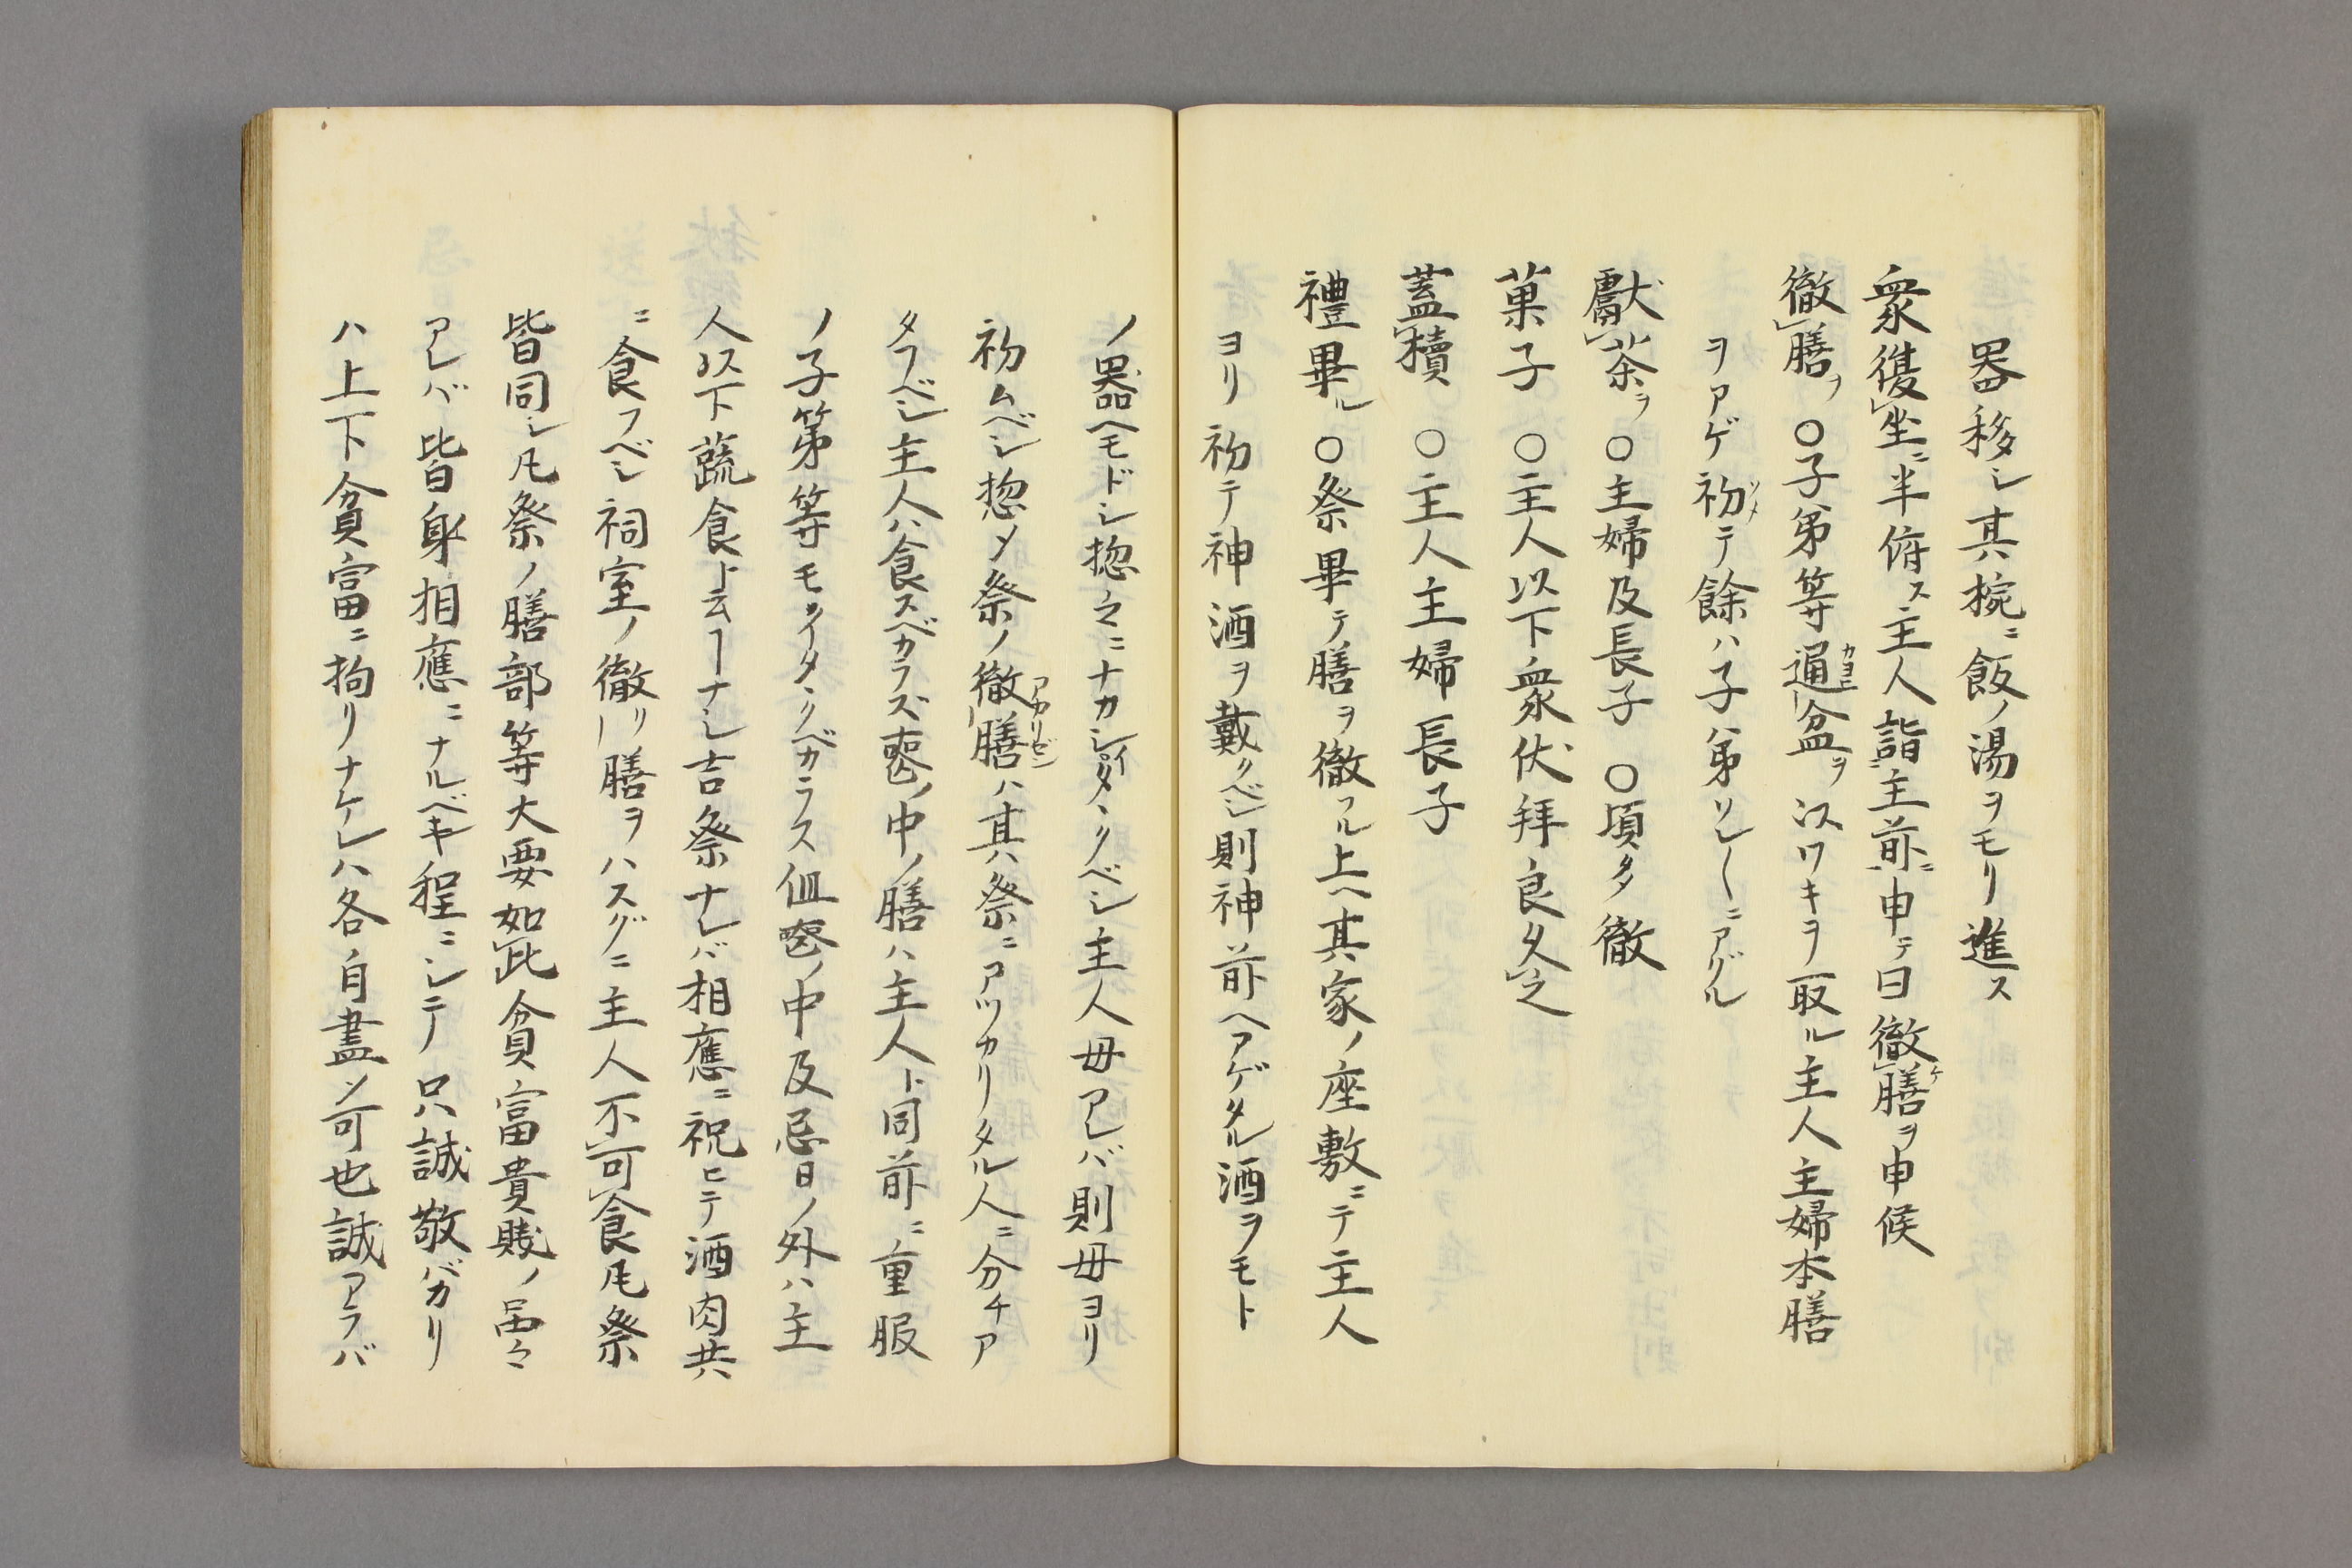 器移シ其椀ニ飯ノ湯ヲモリ進ス
衆復坐ニ半俯ス主人詣主前ニ申テ曰徹膳ヲ申候
徹膳ヲ〇子弟等通盆ヲ以ワキヲ取ル主人主婦本膳
ヲアゲ初テ餘ハ子弟ソレ〱ニアグル
獻茶ヲ〇主婦及長子〇頃タ徹
菓子〇主人以下衆伏拜良久之
蓋櫝〇主人主婦長子
禮畢ル〇祭畢テ膳ヲ徹フル上ヘ其家ノ座敷ニテ主人
ヨリ初テ神酒ヲ戴クベシ則神前ヘアゲタル酒ヲモト
ノ器ヘモドシ惣之ニナカシイタヽクベシ主人母アレバ則母ヨリ
初ムベシ惣〆祭ノ徹膳ハ其祭ニアツカリタル人ニ分チア
タフベシ主人ハ食スベカラズ喪ノ中ノ膳ハ主人ト同前ニ重服
ノ子第等モイタヽクベカラス但喪ノ中及忌日ノ外ハ主
人以下蔬食ト云ヿナシ吉祭ナレバ相應ニ祝ヒテ酒肉共
ニ食フベシ祠室ノ徹リ膳ヲハスグニ主人不可食凡祭
皆同シ凡祭ノ膳部等大要如此貧富貴賤ノ品々
アレバ皆身相應ニナルベキ程ニシテ只誠敬バカリ
ハ上下貧富ニ拘リナケレハ各自盡ソ可也誠アラバ